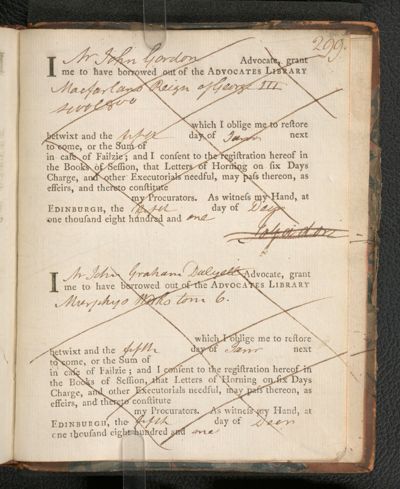 299.
I Mr John Gordon Advocate, grant
me to have borrowed out of the ADVOCATES LIBRARY
Macfarlans Reign of George III
which I oblige me to reſtore
betwixt and the fifth day of Janr next
to come, or the Sum of
in caſe of Failzie; and I conſent to the regiſtration hereof in
the Books of Seſſion, that Letters of Horning on ſix Days
Charge, and other Executorials needful, may paſs thereon, as
effeirs, and thereto conſtitute
my Procurators. As witneſs my Hand, at
EDINBURGH, the fifth day of Decr
one thouſand eight hundred and one
I Mr John Graham Dalyell Advocate, grant
me to have borrowed out of the ADVOCATES LIBRARY
Murphys Works tom 6.
which I oblige me to reſtore
betwixt and the fifth day of Janr next
to come, or the Sum of
in caſe of Failzie; and I conſent to the regiſtration hereof in
the Books of Seſſion, that Letters of Horning on ſix Days
Charge, and other Executorials needful, may paſs thereon, as
effeirs, and thereto conſtitute
my Procurators. As witneſs my Hand, at
EDINBURGH, the fifth day of Decr
one thouſand eight hundred and one